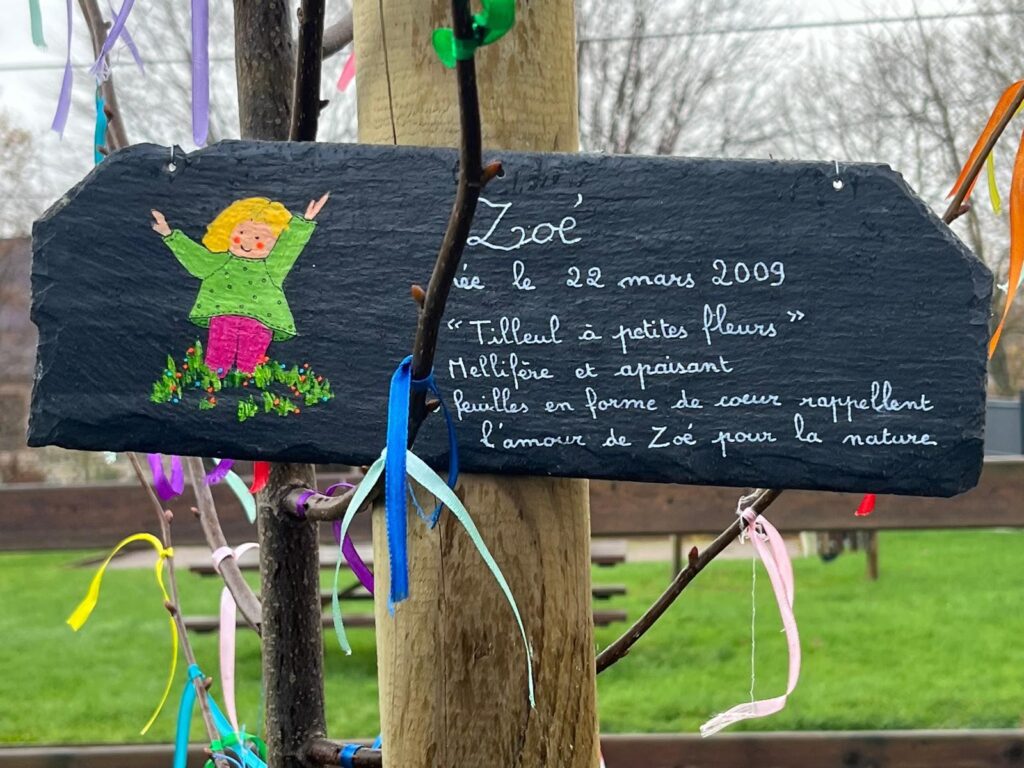 Zoé
née le 22 mars 2009
"Tilleul à petites fleurs"
Mellifère et apaisant
feuilles en forme de coeur rappellent
l'amour de Zoé pour la nature